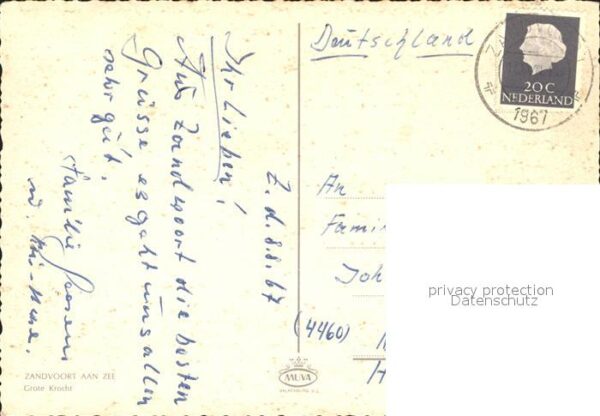 Z. d. 8.8.67
Ihr Lieben!
Aus Zandvoort die besten
Grüsse es geht uns allen
sehr gut.
Familie
u.
Deutschland
20 C
NEDERLAND
1967
An
Fami
Joh
(4460)
privacy protection
Datenschutz
MUVA
ZANDVOORT AAN ZEE
Grote Krocht